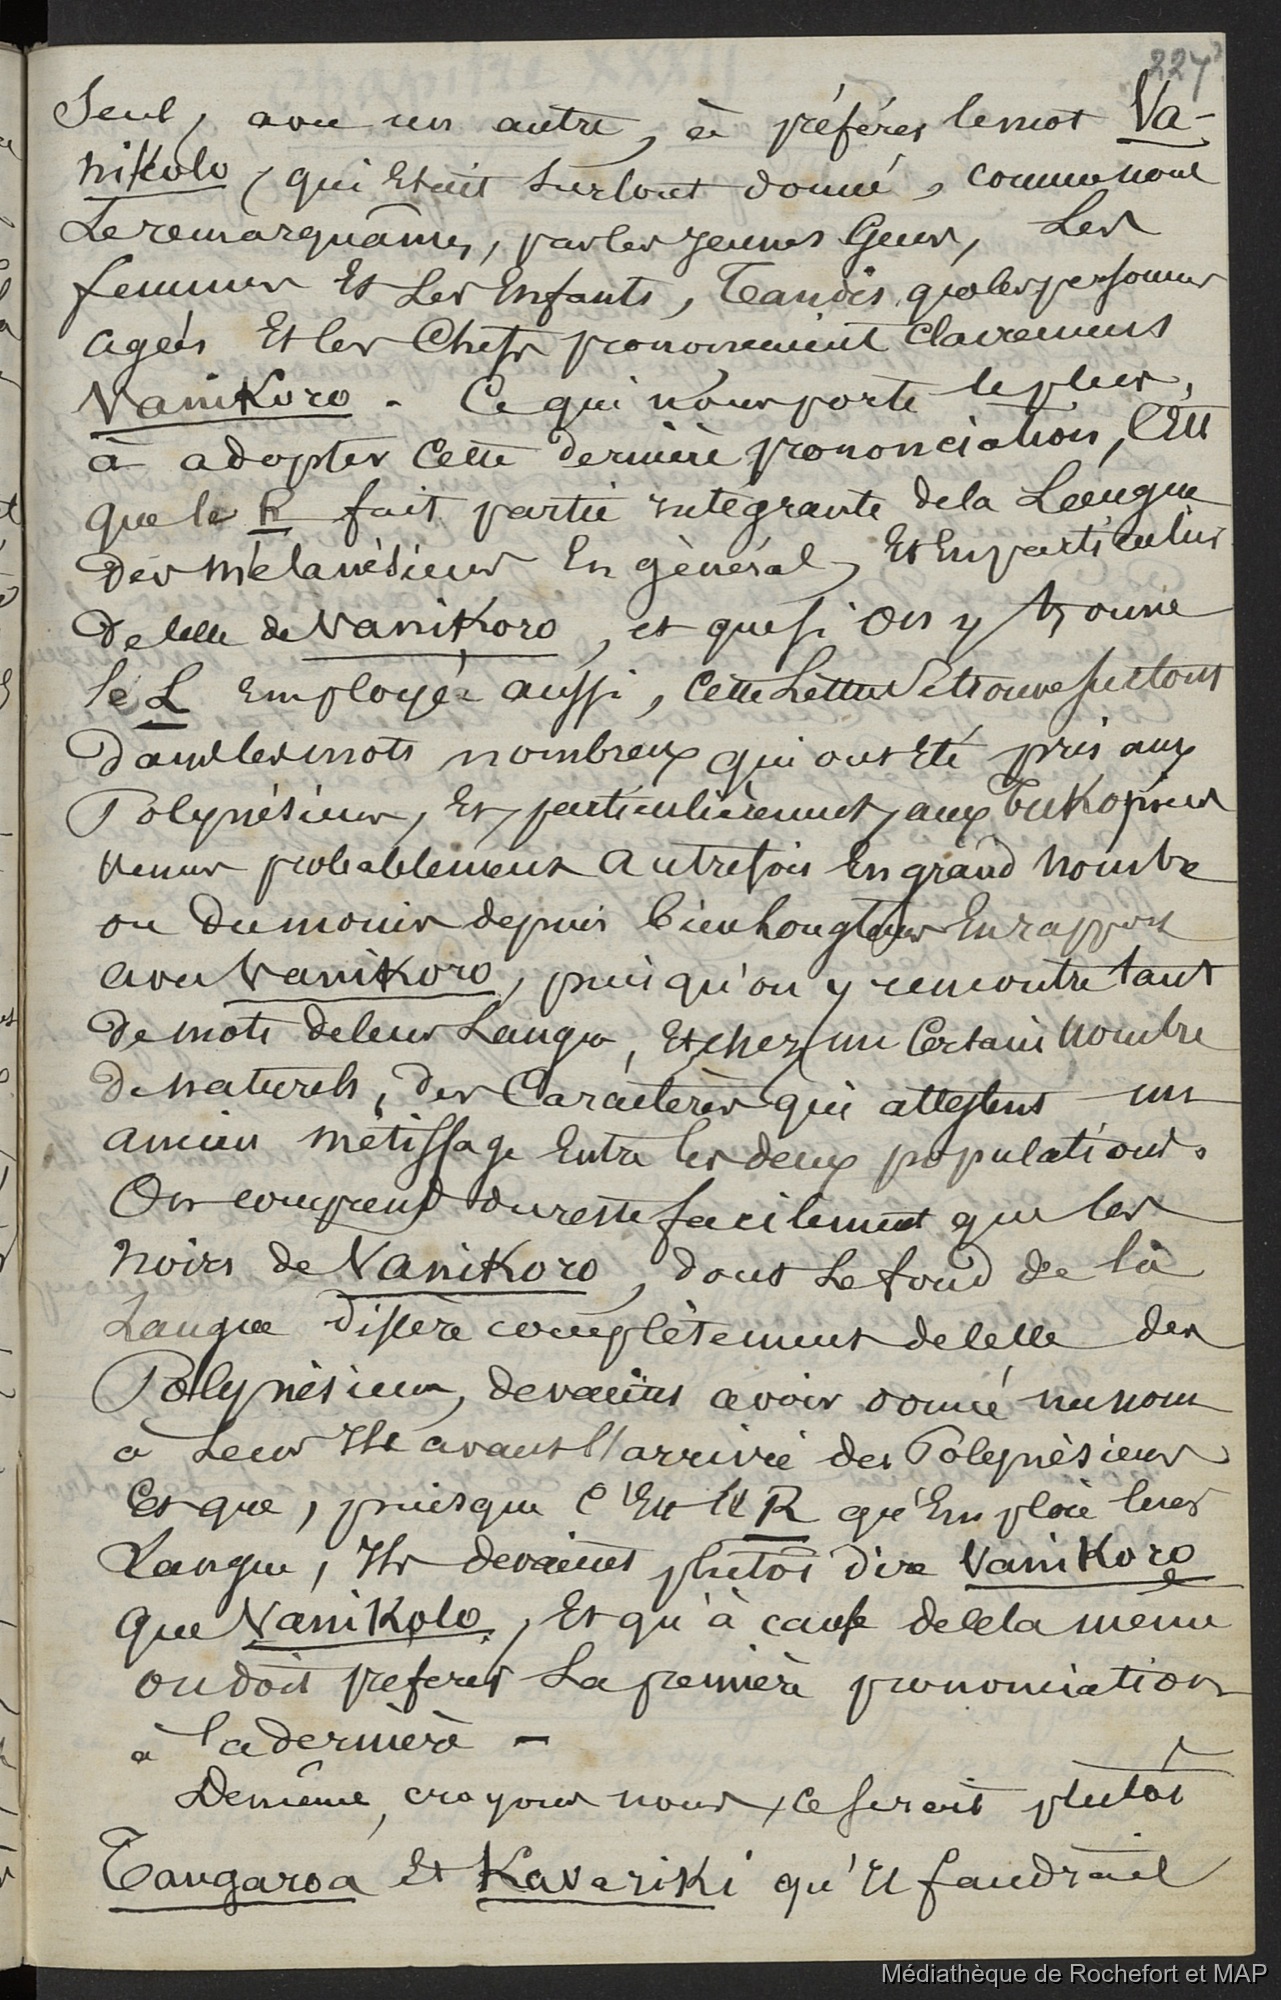 227
Seul, avec un autre, à préférer le mot Va-
nikolo, qui était surtout donné, comme nous
le remarquâmes, par les jeunes gens, les
femmes et les enfants, tandis que les personnes
agées et les chefs prononcaient clairement
Vanikoro. Ce qui nous porte le plus,
à adopter cette dernière prononciation, c'est
que le R fait partie intégrante de la Langue
des mélanésiens en général, et en particulier
de celle de Vanikoro, et que si on y trouve
le L employée aussi, cette Lettre se trouve surtout
dans les mots nombreux qui ont été pris aux
Polynésiens, et, particulièrement, aux Tukopiens
venus probablement autrefois en grand nombre
ou du moins depuis bien longtems en rapport
avec Vanikoro, puisqu'on y rencontre tant
de mots de leur Langue, et chez un certain nombre
de naturels, des caractères qui attestent un
ancien métissage entre les deux populations.
On comprend du reste facilement que les
noirs de Vanikoro, dont le fond de la
Langue diffère complètement de celle des
Polynésiens, devaient avoir donné un nom
à leur Ile avant l'arrivée des Polynésiens
et que, puisque c'est le R qu'emploie leur
Langue, Ils devaient plutôt dire Vanikoro
que Vanikolo, et qu'à cause de cela même
on doit préférer la première prononciation
à la dernière -
De même, croyons nous, ce serait plutôt
Tangaroa et Kavariki qu'il faudrait
Médiathèque de Rochefort et MAP